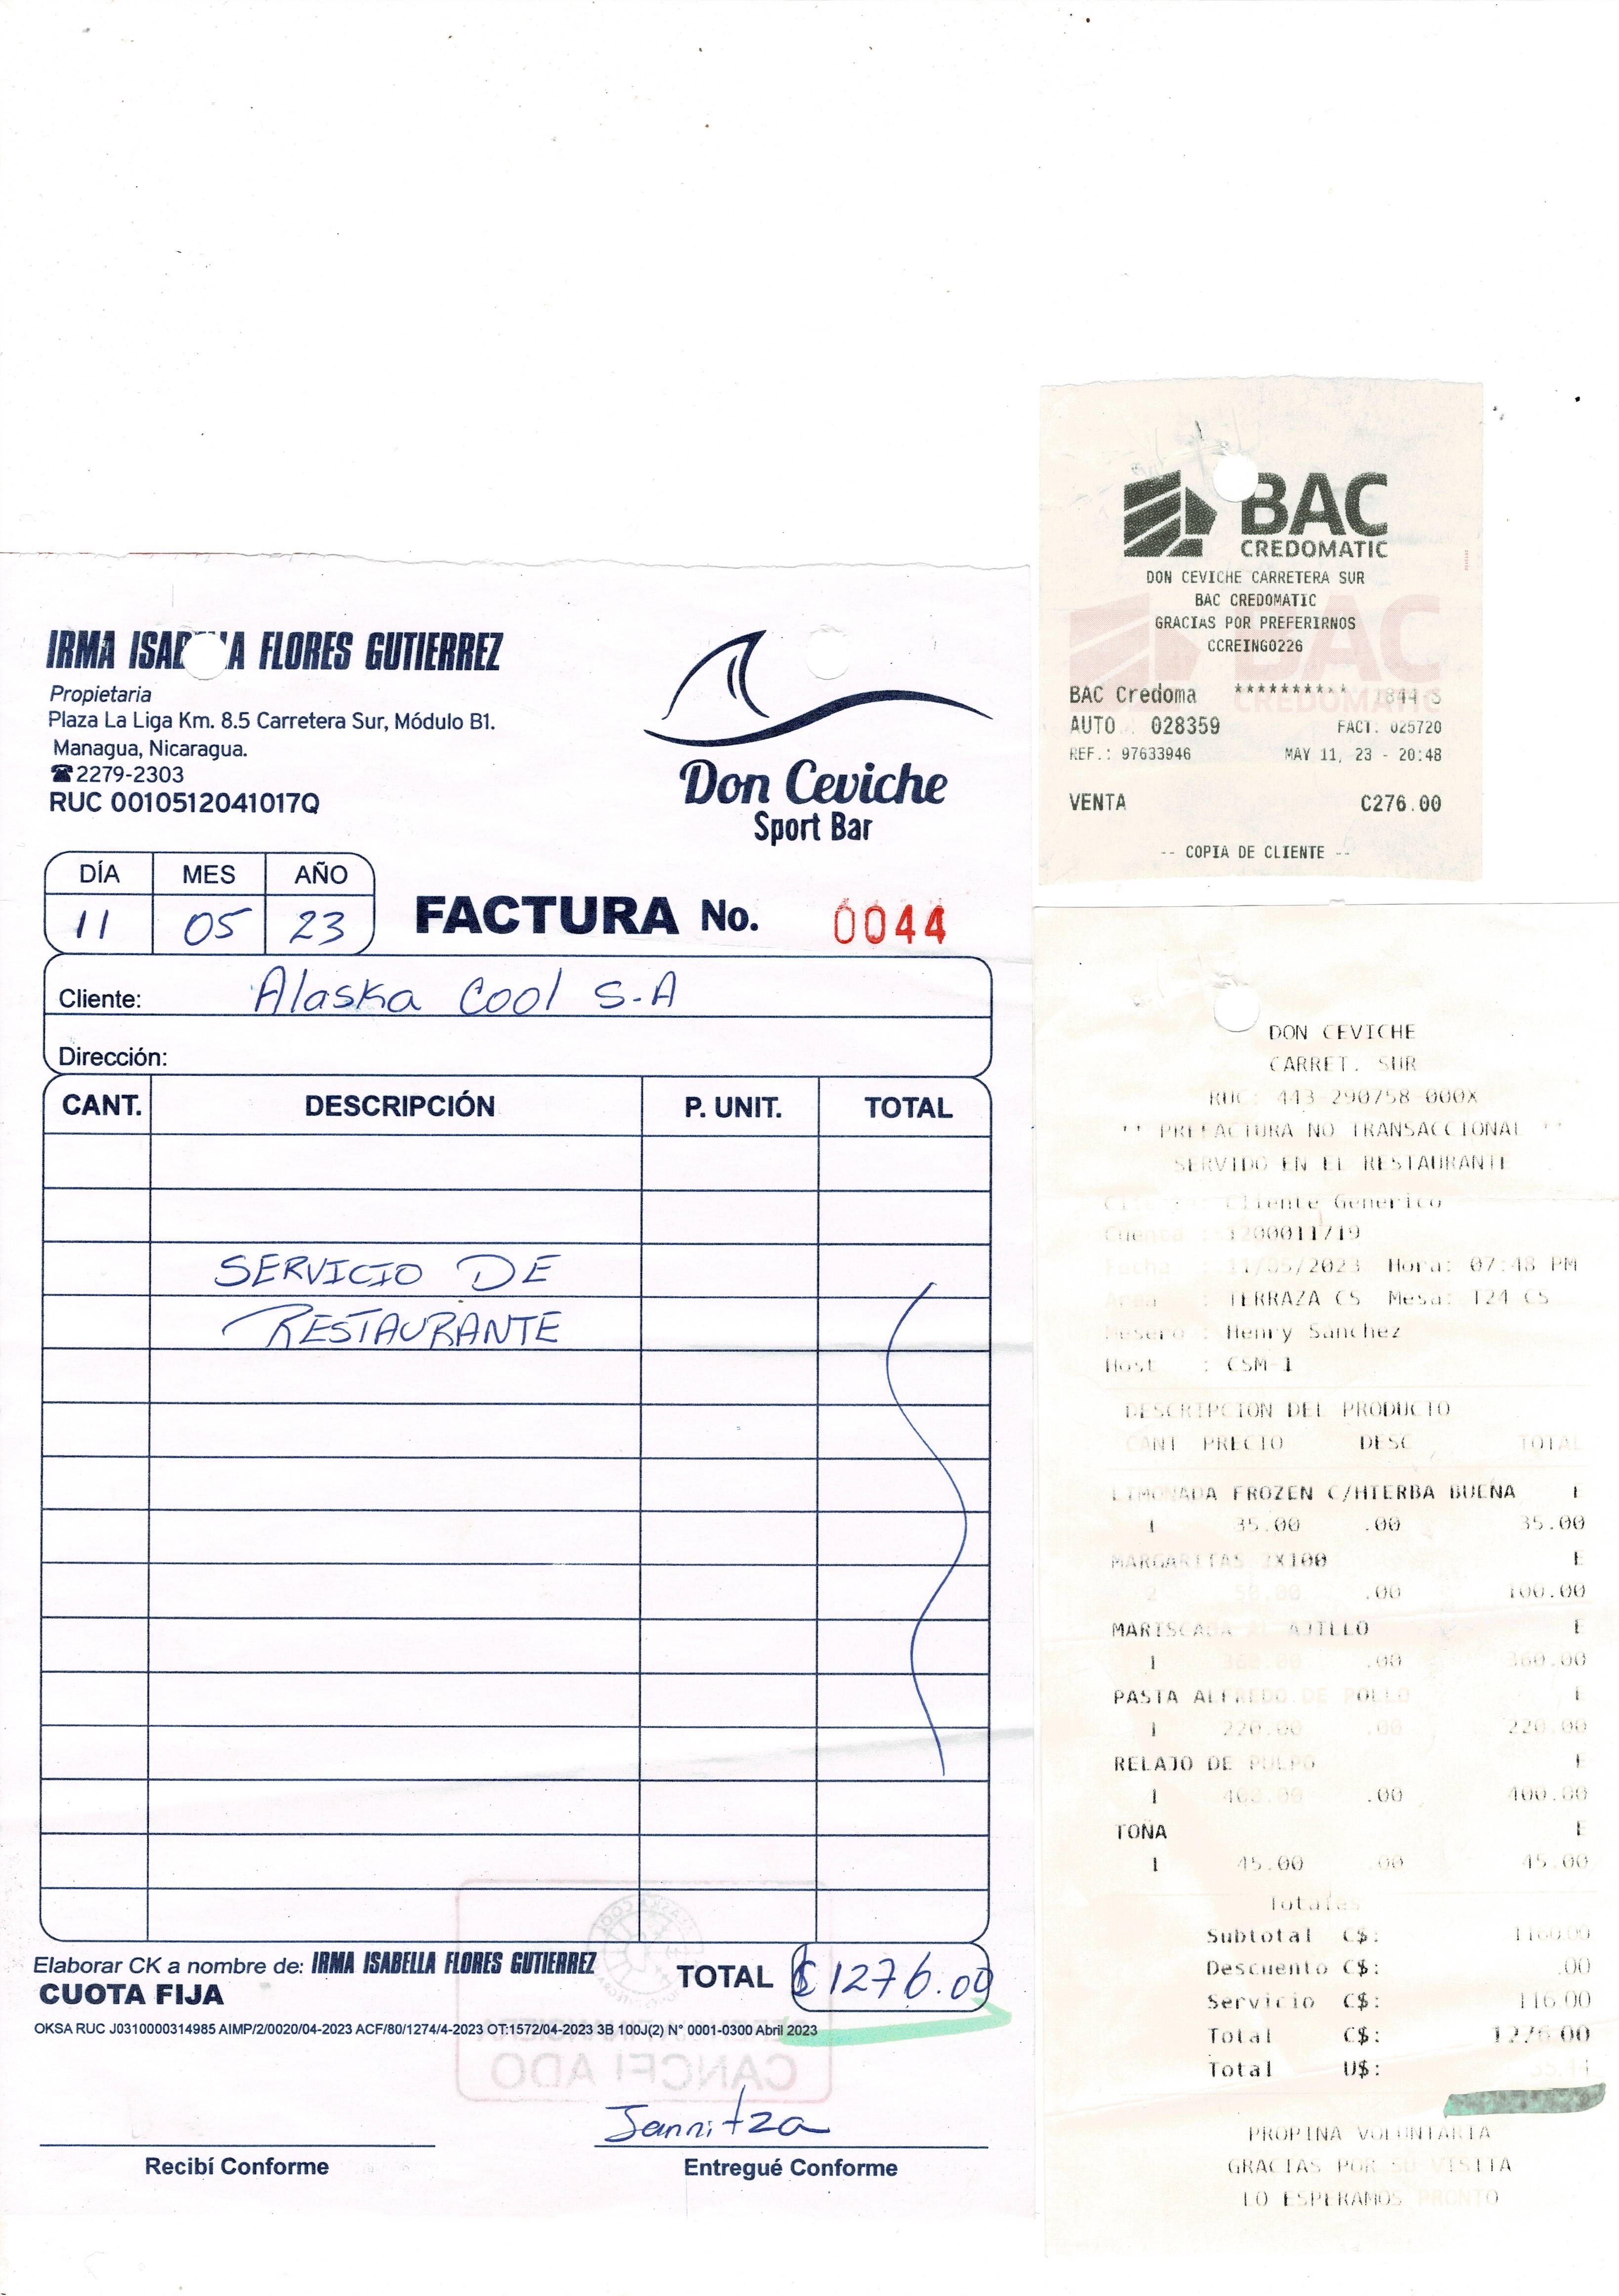 IRMA ISABELLA FLORES GUTIERREZ
Propietaria
Plaza La Liga Km. 8.5 Carretera Sur, Módulo B1.
Managua, Nicaragua.
☎2279-2303
RUC 0010512041017Q
Don Ceviche
Sport Bar
DÍA MES AÑO
11 05 23
FACTURA No. 0044
Cliente: Alaska Cool S.A
Dirección:
CANT. DESCRIPCIÓN P. UNIT. TOTAL
SERVICIO DE
RESTAURANTE
Elaborar CK a nombre de: IRMA ISABELLA FLORES GUTIERREZ
CUOTA FIJA
TOTAL C$1276.00
OKSA RUC J0310000314985 AIMP/2/0020/04-2023 ACF/80/1274/4-2023 OT:1572/04-2023 3B 100J(2) N° 0001-0300 Abril 2023
CANCELADO
Jannitza
Recibí Conforme
Entregué Conforme
BAC
CREDOMATIC
DON CEVICHE CARRETERA SUR
BAC CREDOMATIC
GRACIAS POR PREFERIRNOS
CCREING0226
BAC Credoma ********** 1844-S
AUTO.: 028359 FACT: 025720
REF.: 97633946 MAY 11, 23 - 20:48
VENTA C276.00
-- COPIA DE CLIENTE --
DON CEVICHE
CARRET. SUR
RUC: 443-290758-000X
** PREFACTURA NO TRANSACCIONAL **
SERVIDO EN EL RESTAURANTE
: Cliente Generico
Cuenta : 1200011719
Fecha : 11/05/2023 Hora: 07:48 PM
Area : TERRAZA CS Mesa: T24 CS
Mesero : Henry Sanchez
Host : CSM-1
DESCRIPCION DEL PRODUCTO
CANT PRECIO DESC TOTAL
LIMONADA FROZEN C/HIERBA BUENA E
1 35.00 .00 35.00
MARGARITAS 2X100 E
2 50.00 .00 100.00
MARISCADA AL AJILLO E
1 360.00 .00 360.00
PASTA ALFREDO DE POLLO E
1 220.00 .00 220.00
RELAJO DE PULPO E
1 400.00 .00 400.00
TOÑA E
1 45.00 .00 45.00
Totales
Subtotal C$: 1160.00
Descuento C$: .00
Servicio C$: 116.00
Total C$: 1276.00
Total U$:
PROPINA VOLUNTARIA
GRACIAS POR SU VISITA
LO ESPERAMOS PRONTO